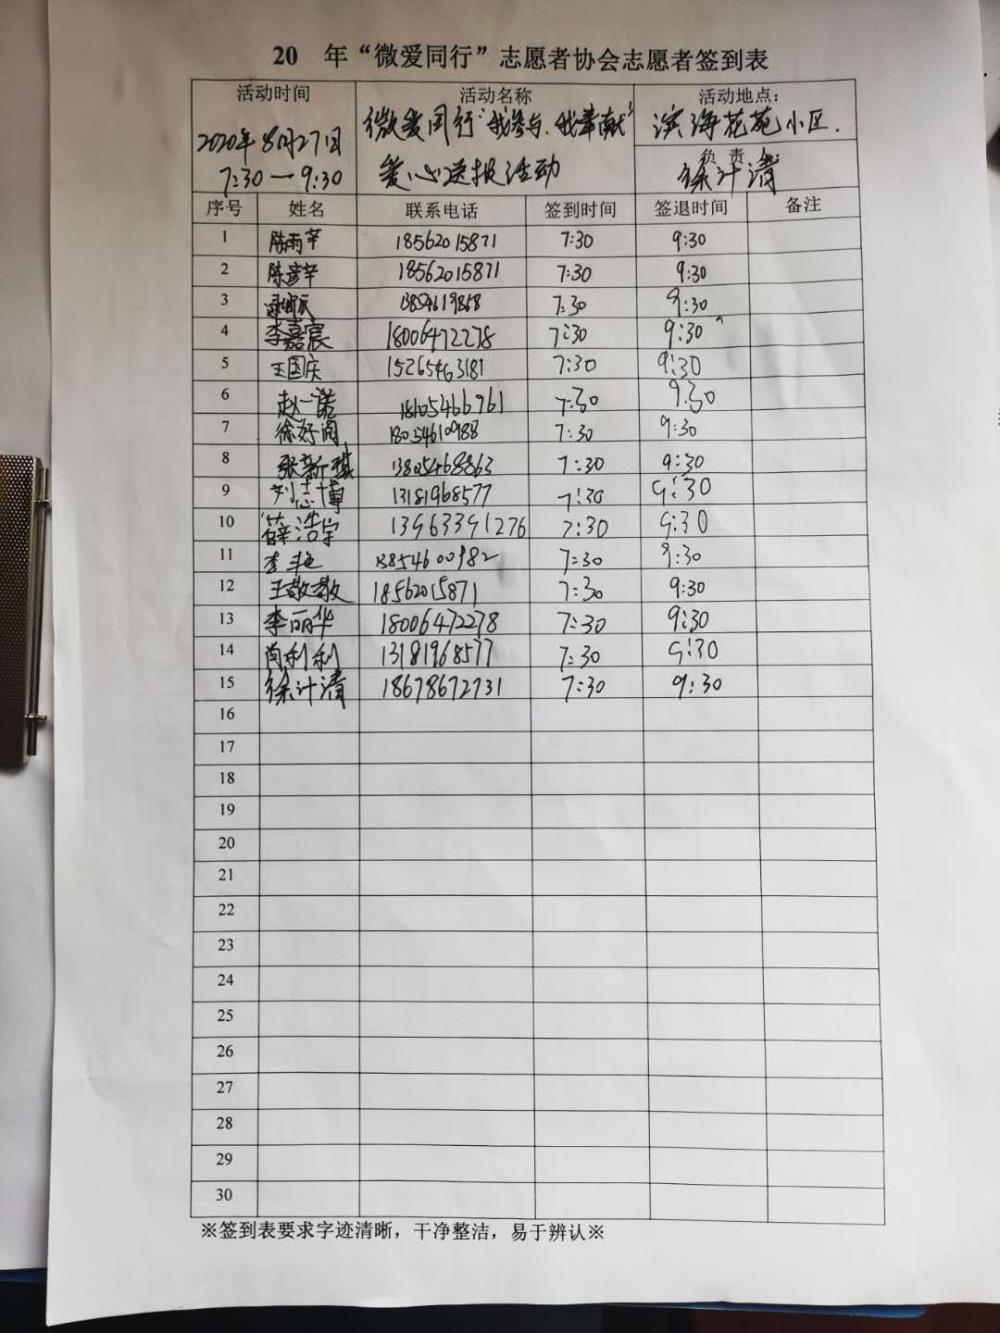 20 年“微爱同行”志愿者协会志愿者签到表
活动时间 活动名称 活动地点：
2020年8月27日 微爱同行"我参与.我奉献" 滨海花苑小区.
7:30一9:30 爱心送报活动 负责 徐计清
序号 姓名 联系电话 签到时间 签退时间 备注
1 陈雨辛 18562015871 7:30 9:30
2 陈彦辛 18562015871 7:30 9:30
3 13854619868 7:30 9:30
4 李嘉宸 18006472278 7:30 9:30
5 王国庆 15265463181 7:30 9:30
6 赵一诺 18105466961 7:30 9:30
7 徐好阅 18054610988 7:30 9:30
8 张新琪 13805468863 7:30 9:30
9 刘志博 13181968577 7:30 9:30
10 薛浩宇 13963391276 7:30 9:30
11 李艳 13854600982 7:30 9:30
12 王敬敬 18562015871 7:30 9:30
13 李丽华 18006472278 7:30 9:30
14 尚利利 13181968577 7:30 9:30
15 徐计清 18678672731 7:30 9:30
16
17
18
19
20
21
22
23
24
25
26
27
28
29
30
※签到表要求字迹清晰，干净整洁，易于辨认※